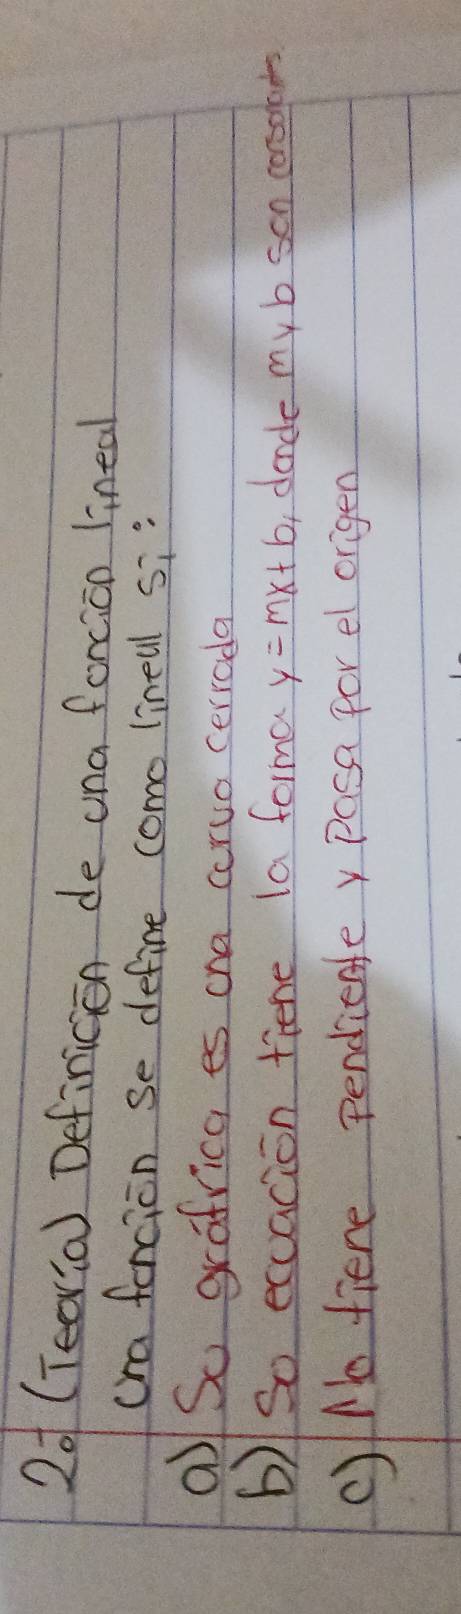 2.- (Teoría) Definición de una función lineal
una función se define como lineal si:
a) Su gráfrica es una curva cerrada
b) Su ecuación tiene la forma y=mx+b, donde m y b son
c) No tiene pendiente y pasa por el origen